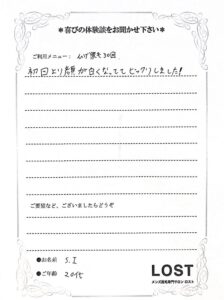 ＊喜びの体験談をお聞かせ下さい＊
ご利用メニュー： ムダ脱毛30回
初回より顔が白くなっててビックリしました！
ご要望など、ございましたらどうぞ
●お名前 S.I
●ご年齢 20代
LOST
メンズ脱毛専門サロン ロスト